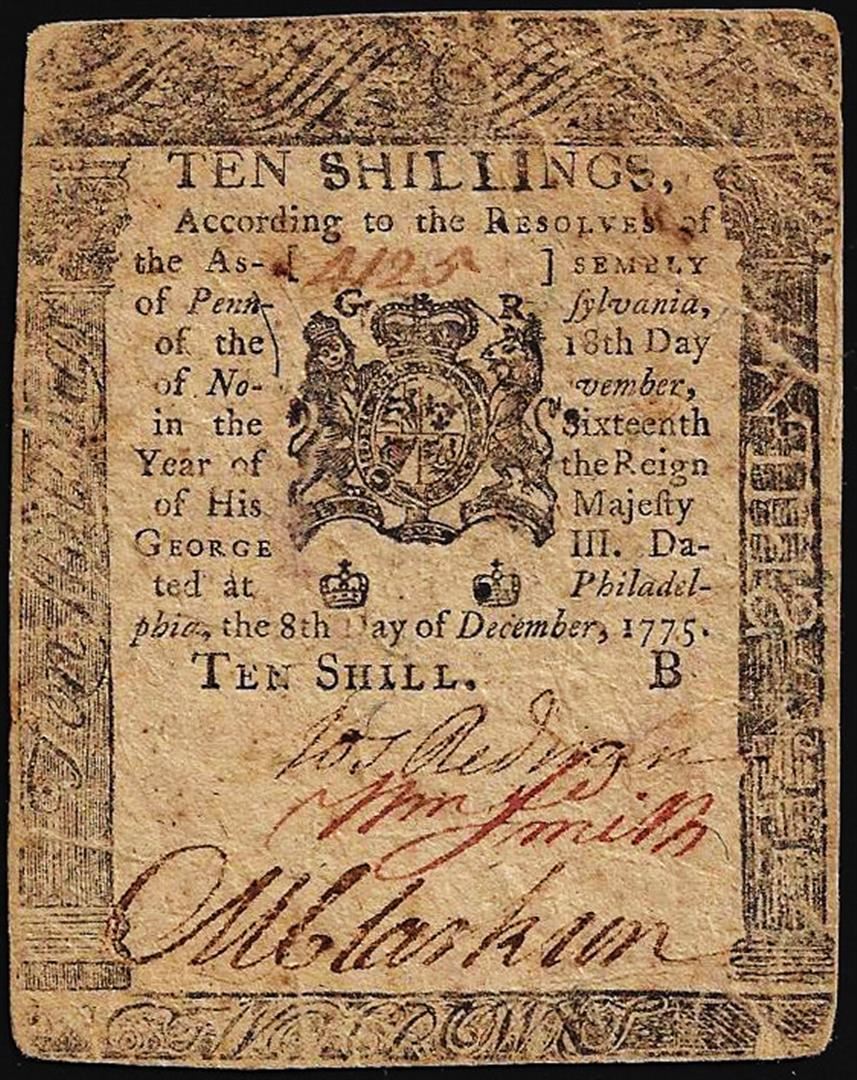 TEN SHILLINGS,
According to the RESOLVES of
the As- [ 4125 ] SEMBLY
of Penn- G R ſylvania,
of the 18th Day
of No- vember,
in the Sixteenth
Year of the Reign
of His Majeſty
GEORGE III. Da-
ted at Philadel-
phia, the 8th Day of December, 1775.
TEN SHILL. B
Jos Redman
Wm Smith
M Clarkson
Ten Shillings
TWO CROWNS